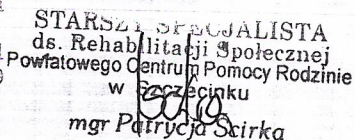 STARSZY SPECJALISTA
ds. Rehabilitacji Społecznej
Powiatowego Centrum Pomocy Rodzinie
w Szczecinku
mgr Patrycja Scirka